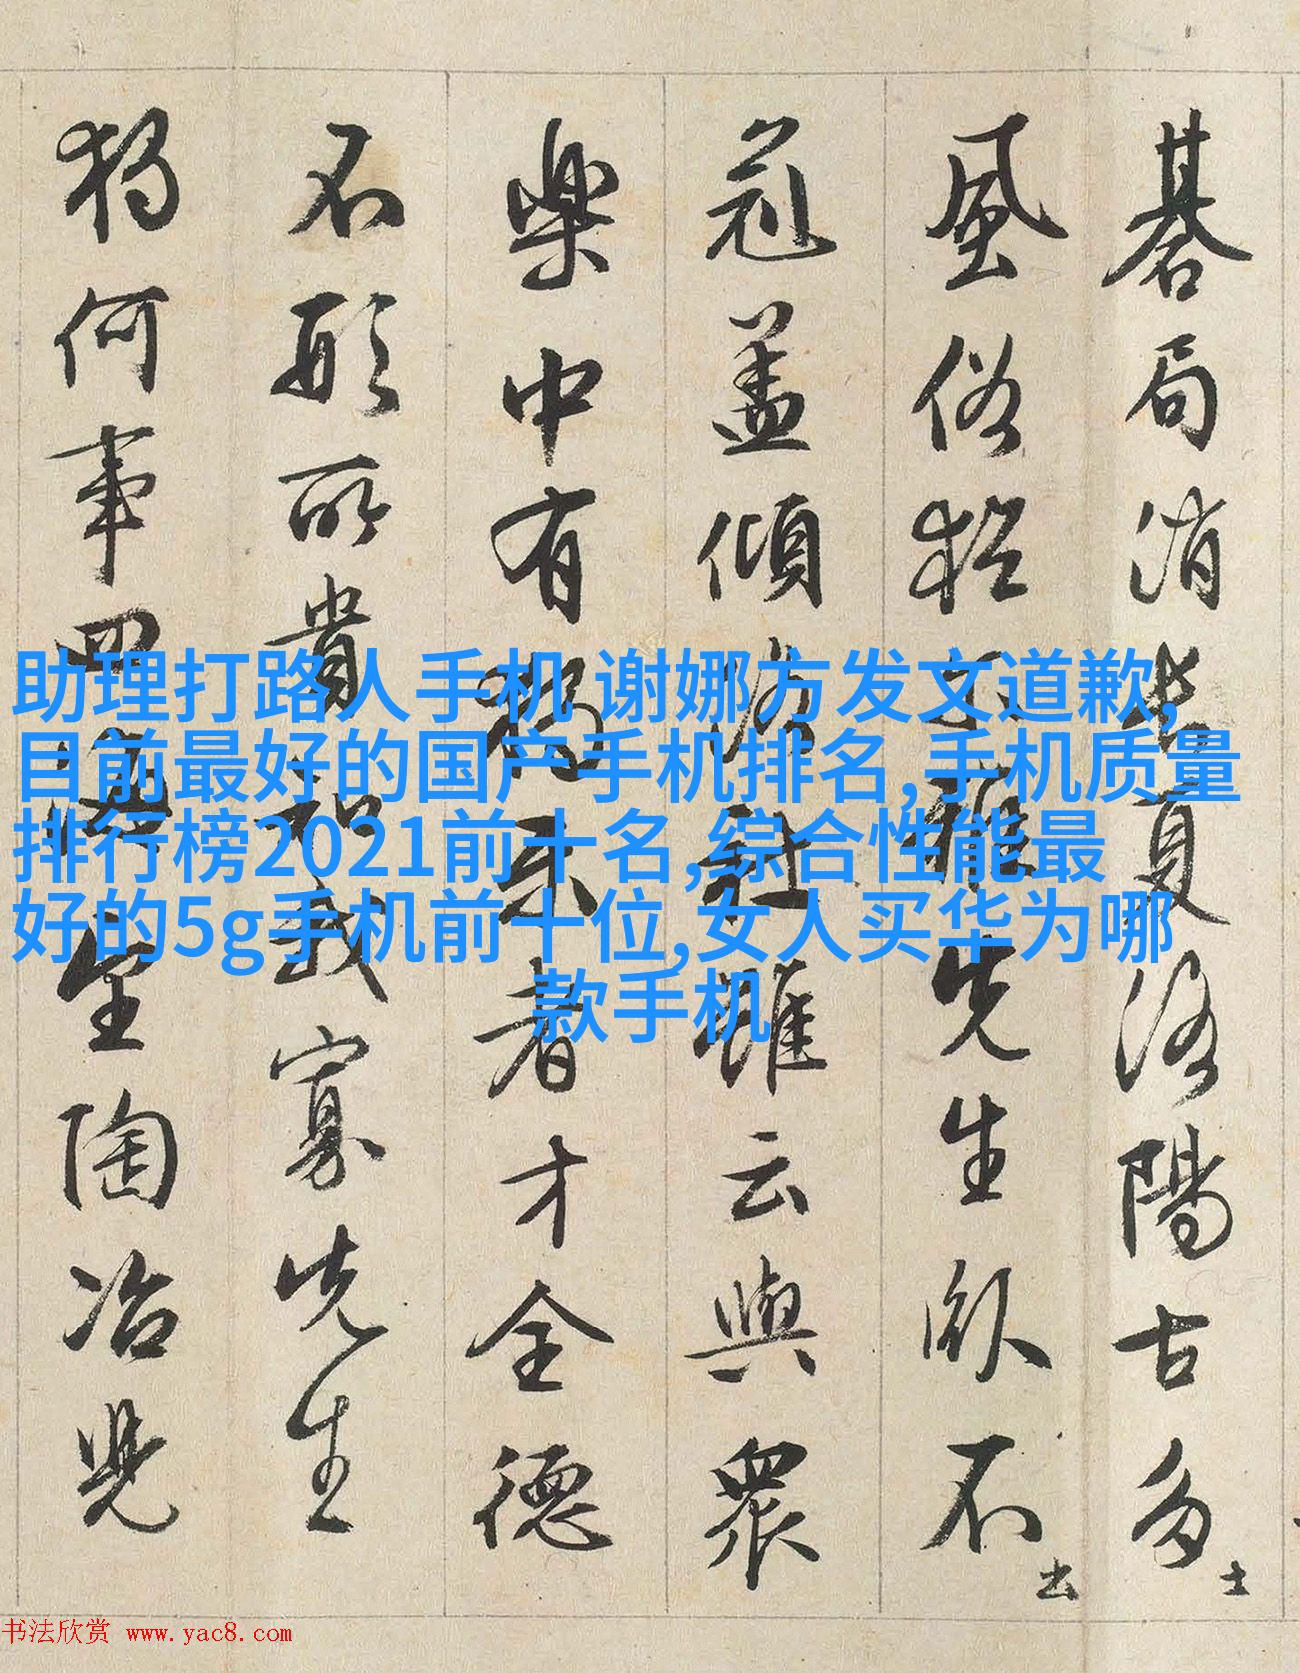 碁局消長夏洛陽古多士
風俗猶爾雅先生卧不出
冠盖傾洛社雖云與衆
樂中有獨樂者才全德
不形所貴知我寡先生
獨何事四海望陶冶兒
助理打路人手机 谢娜方发文道歉,
目前最好的国产手机排名,手机质量
排行榜2021前十名,综合性能最
好的5g手机前十位,女人买华为哪
款手机
书法欣赏 www.yac8.com